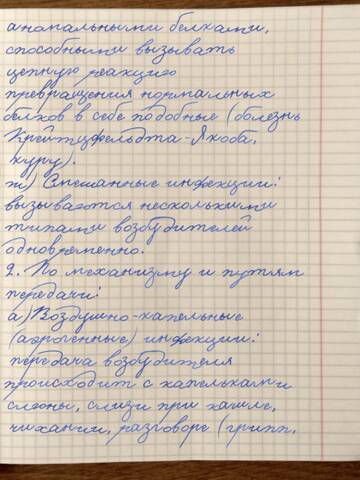 аномальными белками,
способными вызывать
цепную реакцию
превращения нормальных
белков в себе подобные (болезнь
Крейтцфельдта-Якоба,
куру).
ж) Смешанные инфекции:
вызываются несколькими
типами возбудителей
одновременно.
2. По механизму и путям
передачи:
а) Воздушно-капельные
(аэрогенные) инфекции:
передача возбудителя
происходит с капельками
слюны, слизи при кашле,
чихании, разговоре (грипп,